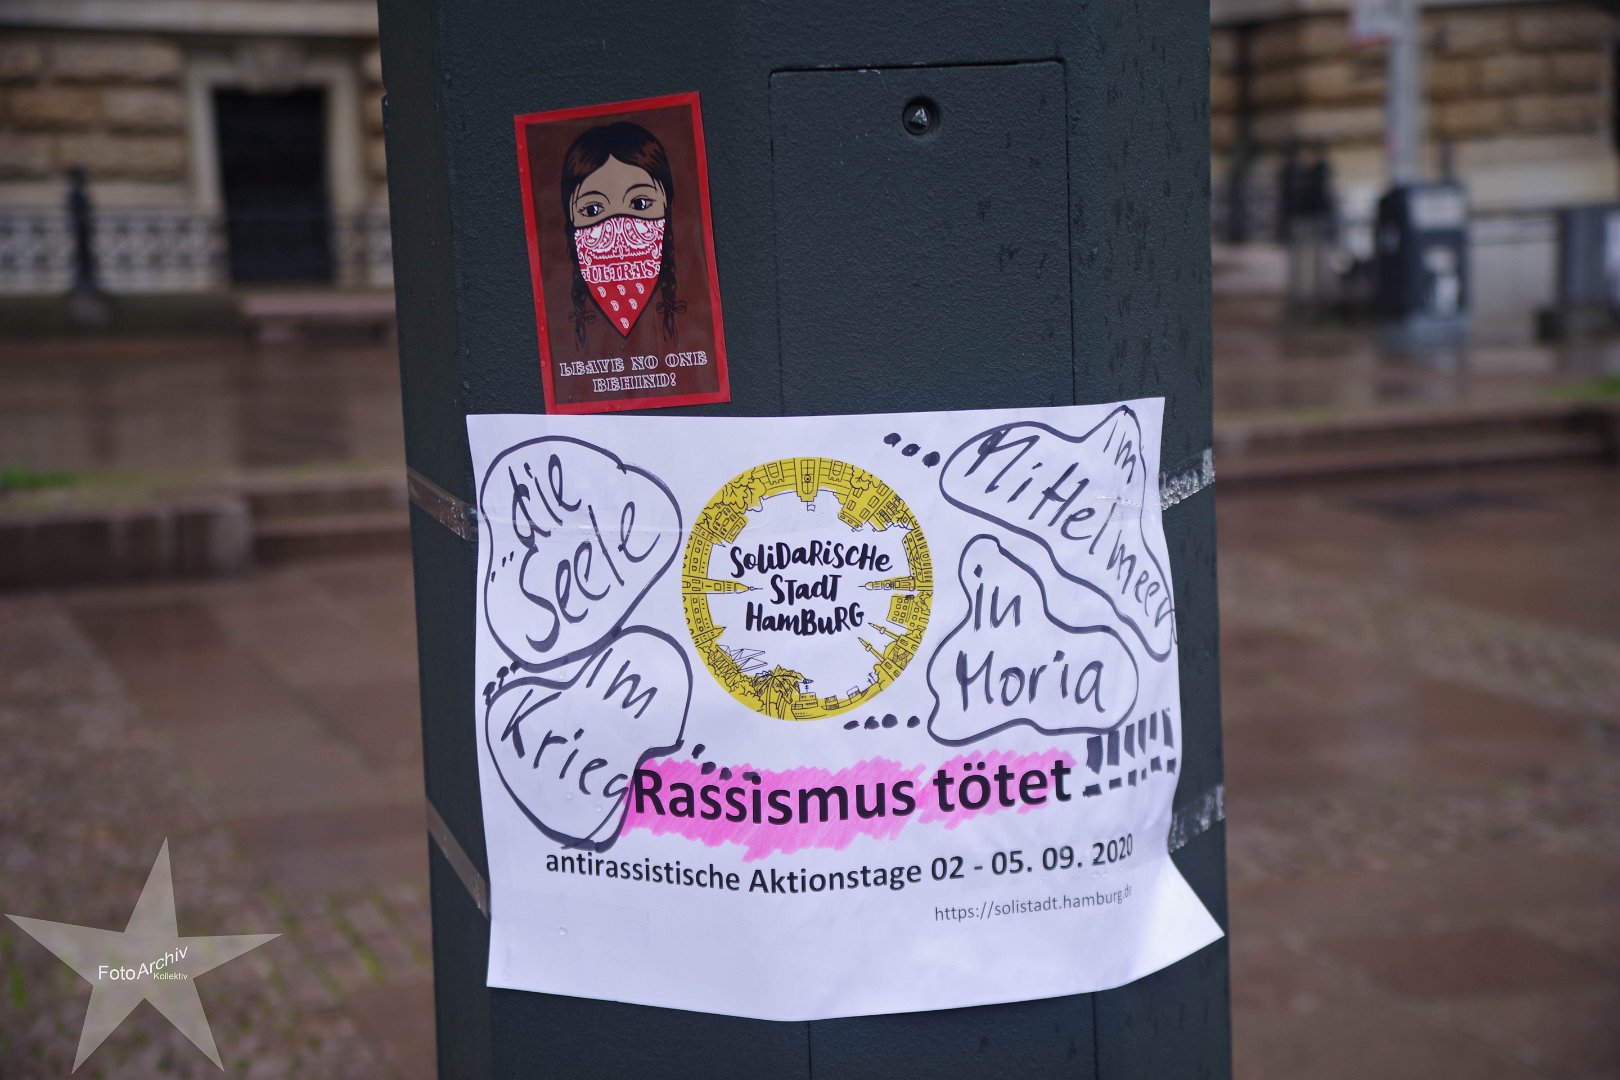 ULTRAS
LEAVE NO ONE
BEHIND!
...die
Seele
...Im
Krieg
SOLiDaRiSCHe
STadT
HamBuRG
...Im
Mittelmeer
in
Moria
....
Rassismus tötet
antirassistische Aktionstage 02 - 05. 09. 2020
https://solistadt.hamburg.de
FotoArchiv
Kollektiv